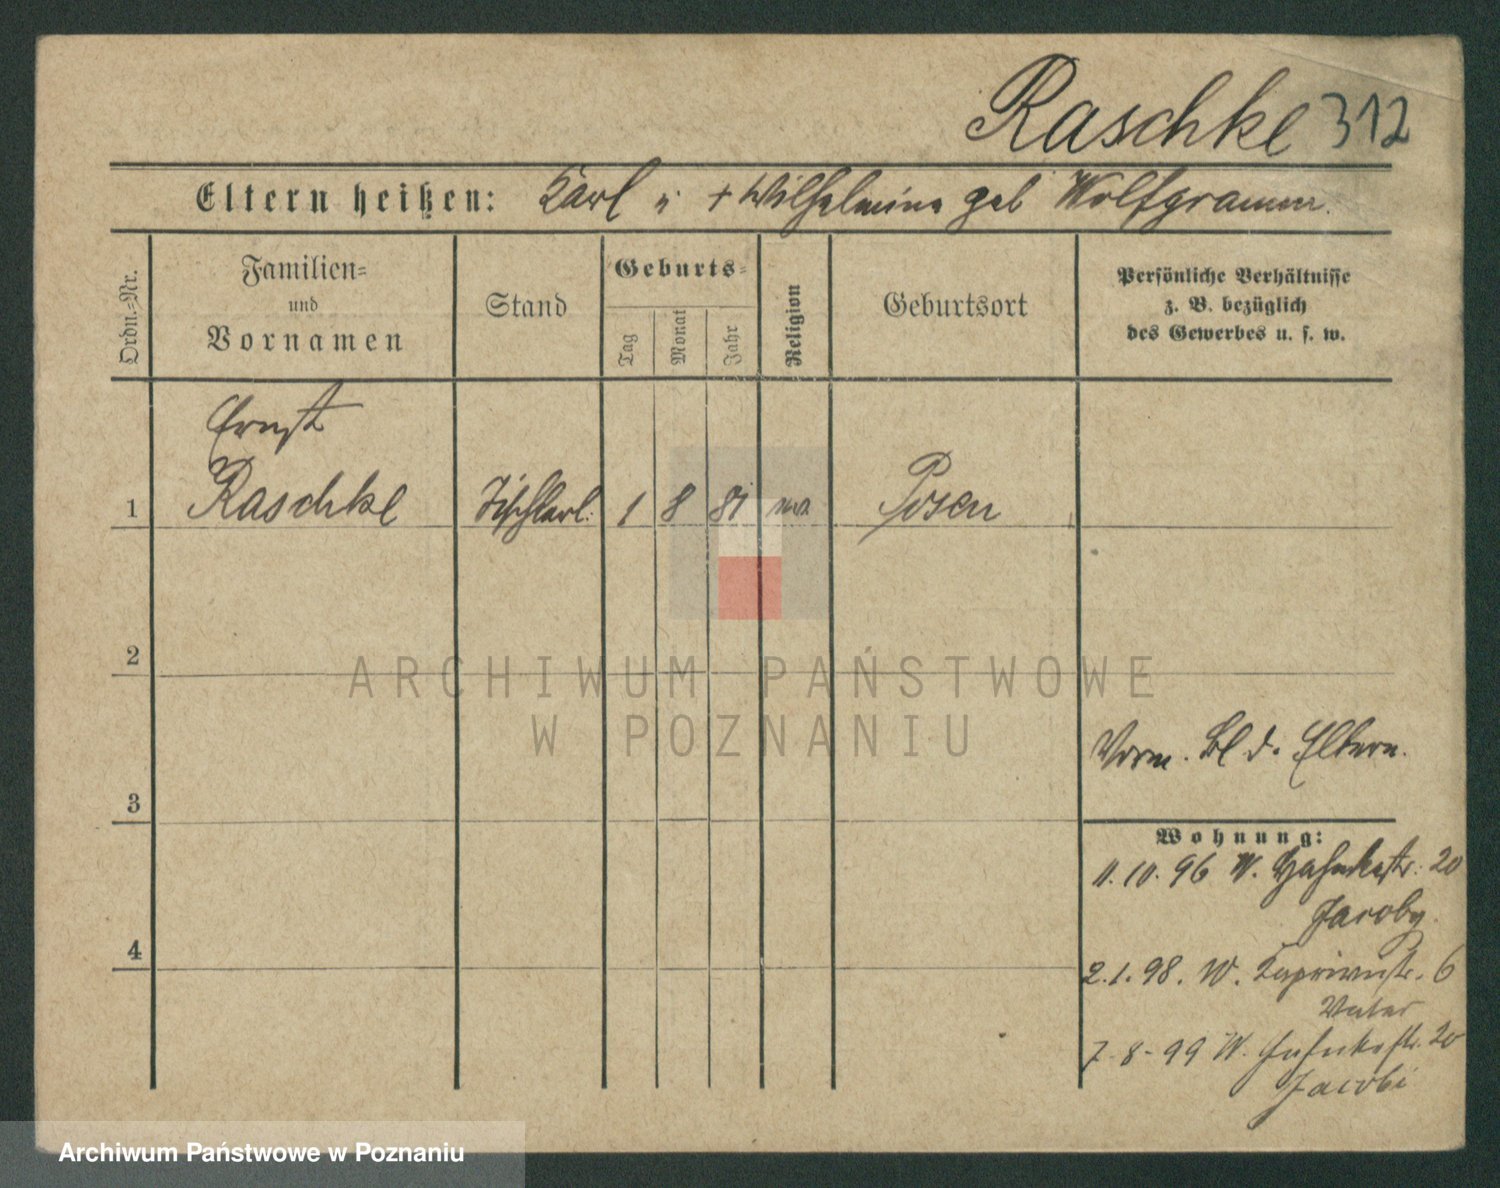 Raschke 312
Eltern heißen: Karl u + Wilhelmine geb Wolfgramm.
Ordn.-Nr.
Familien-
und
Vornamen
Stand
Geburts-
Tag
Monat
Jahr
Religion
Geburtsort
Persönliche Verhältnisse
z. B. bezüglich
des Gewerbes u. s. w.
Ernst
1 Raschke Tischlerl. 1 8 81 ev. Posen
2
ARCHIWUM PAŃSTWOWE
W POZNANIU
Vorm. Bl d. Eltern.
3
Wohnung:
11.10.96 W. 20
Jacoby.
4
2.1.98. W. Caprivistr. 6
Vater
7-8-99 W. 20
Jacobi
Archiwum Państwowe w Poznaniu